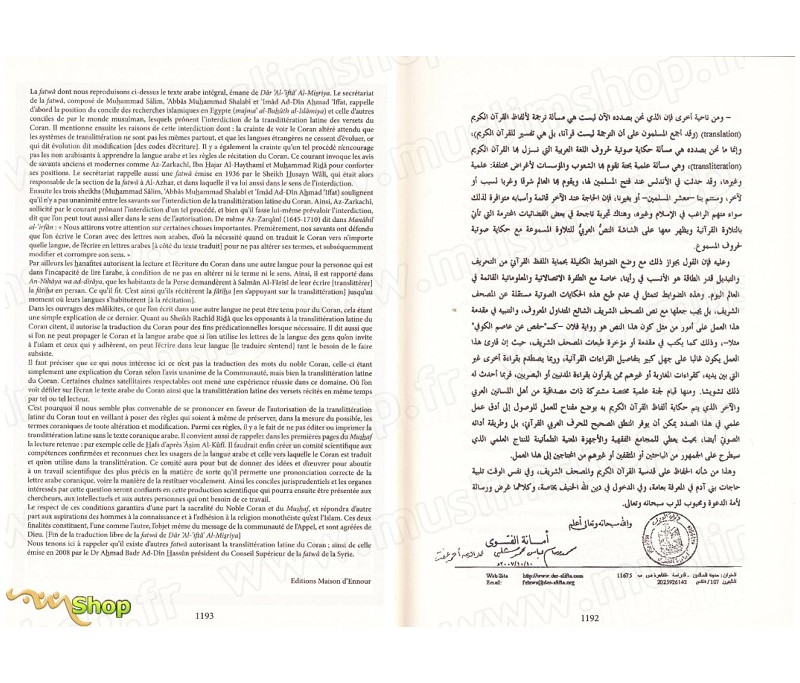 La fatwâ dont nous reproduisons ci-dessus le texte arabe intégral, émane de Dâr 'Al-'Iftâ' Al-Miṣriya. Le secrétariat
de la fatwâ, composé de Muḥammad Sâlim, 'Abbâs Muḥammad Shalabî et 'Imâd Ad-Dîn Aḥmad 'Iffat, rappelle
d'abord la position du concile des recherches islamiques en Egypte (majma' al-Buḥûth al-Islâmiya) et celle d'autres
conciles de par le monde musulman, lesquels prônent l'interdiction de la translittération latine des versets du
Coran. Il mentionne ensuite les raisons de cette interdiction dont : la crainte de voir le Coran altéré attendu que
les systèmes de translittération ne sont pas les mêmes partout, et que les langues étrangères ne cessent d'évoluer, or
qui dit évolution dit modification [des codes d'écriture]. Il y a également la crainte qu'un tel procédé n'encourage
pas les non arabisants à apprendre la langue arabe et les règles de récitation du Coran. Ce courant invoque les avis
de savants anciens et modernes comme Az-Zarkachî, Ibn Ḥajar Al-Haythamî et Muḥammad Riḍâ pour conforter
ses positions. Le secrétariat rappelle aussi une fatwâ émise en 1936 par le Sheikh Ḥusayn Wâlî, qui était alors
responsable de la section de la fatwâ à Al-Azhar, et dans laquelle il va lui aussi dans le sens de l'interdiction.
Ensuite les trois sheikhs (Muḥammad Sâlim, 'Abbâs Muḥammad Shalabî et 'Imâd Ad-Dîn Aḥmad 'Iffat) soulignent
qu'il n'y a pas unanimité entre les savants sur l'interdiction de la translittération latine du Coran. Ainsi, Az-Zarkachî,
sollicité par le courant prônant l'interdiction d'un tel procédé, et bien qu'il fasse lui-même prévaloir l'interdiction,
dit que l'on peut tout aussi aller dans le sens de l'autorisation. De même Az-Zarqânî (1645-1710) dit dans Manâhil
al-'irfân : « Nous attirons votre attention sur certaines choses importantes. Premièrement, nos savants ont défendu
que l'on écrive le Coran avec des lettres non arabes, d'où la nécessité quand on traduit le Coran vers n'importe
quelle langue, de l'écrire en lettres arabes [à côté du texte traduit] pour ne pas altérer ses termes, et subséquemment
modifier et corrompre son sens. »
Par ailleurs les hanafites autorisent la lecture et l'écriture du Coran dans une autre langue pour la personne qui est
dans l'incapacité de lire l'arabe, à condition de ne pas en altérer ni le terme ni le sens. Ainsi, il est rapporté dans
An-Nihâya wa ad-dirâya, que les habitants de la Perse demandèrent à Salmân Al-Fârisî de leur écrire [translittérer]
la fâtiḥa en persan. Ce qu'il fit. C'est ainsi qu'ils récitèrent la fâtiḥa [en s'appuyant sur la translittération] jusqu'au
moment où leurs langues s'habituèrent [à la récitation].
Dans les ouvrages des mâlikites, ce que l'on écrit dans une autre langue ne peut être tenu pour du Coran, cela étant
une simple explication de ce dernier. Quant au Sheikh Rachîd Riḍâ que les opposants à la translittération latine du
Coran citent, il autorise la traduction du Coran pour des fins prédicationnelles lorsque nécessaire. Il dit aussi que
si l'on ne peut propager le Coran et la langue arabe que si l'on utilise les lettres de la langue des gens qu'on invite
à l'Islam et ceux qui y adhérent, on peut l'écrire dans leur langue [le traduire s'entend] tant le besoin de le faire
subsiste.
Il faut préciser que ce qui nous intéresse ici ce n'est pas la traduction des mots du noble Coran, celle-ci étant
simplement une explication du Coran selon l'avis unanime de la Communauté, mais bien la translittération latine
du Coran. Certaines chaînes satellitaires respectables ont mené une expérience réussie dans ce domaine. Où l'on
voit défiler sur l'écran le texte arabe du Coran ainsi que la translittération latine des versets récités en même temps
par tel ou tel lecteur.
C'est pourquoi il nous semble plus convenable de se prononcer en faveur de l'autorisation de la translittération
latine du Coran tout en veillant à poser des règles qui soient à même de préserver, dans la mesure du possible, les
termes coraniques de toute altération et modification. Parmi ces règles, il y a le fait de ne pas éditer ou imprimer la
translittération latine sans le texte coranique arabe. Il convient aussi de rappeler dans les premières pages du Muṣḥaf
la lecture retenue : par exemple celle de Ḥafs d'après 'Aṣim Al-Kûfî. Il faudrait enfin créer un comité scientifique aux
compétences confirmées et reconnues chez les usagers de la langue arabe et celle vers laquelle le Coran est traduit
et qu'on utilise dans la translittération. Ce comité aura pour but de donner des idées et d'œuvrer pour aboutir
à un travail scientifique des plus précis en la matière de sorte qu'il permette une prononciation correcte de la
lettre arabe coranique, voire la manière de la restituer vocalement. Ainsi les conciles jurisprudentiels et les organes
intéressés par cette question seront confiants en cette production scientifique qui pourra ensuite être présentée aux
chercheurs, aux intellectuels et aux autres personnes qui ont besoin de ce travail.
Le respect de ces conditions garantira d'une part la sacralité du Noble Coran et du Muṣḥaf, et répondra d'autre
part aux aspirations des hommes à la connaissance et à l'adhésion à la religion monothéiste qu'est l'Islam. Ces deux
finalités constituent, l'une comme l'autre, l'objet même du message de la communauté de l'Appel, et sont agréées de
Dieu. [Fin de la traduction libre de la fatwâ de Dâr 'Al-'Iftâ' Al-Miṣriya]
Nous tenons ici à rappeler qu'il existe d'autres fatwâ autorisant la translittération latine du Coran ; ainsi de celle
émise en 2008 par le Dr Aḥmad Badr Ad-Dîn Ḥassûn président du Conseil Supérieur de la fatwâ de la Syrie.
Editions Maison d'Ennour
1193
Shop
– ومن ناحية أخرى فإن الذي نحن بصدده الآن ليست هي مسألة ترجمة لألفاظ القرآن الكريم
(translation) (وقد أجمع المسلمون على أن الترجمة ليست قرآنا، بل هي تفسير للقرآن الكريم)،
وإنما ما نحن بصدده هي مسألة حكاية صوتية لحروف اللغة العربية التي نـزل بها القرآن الكريم
(transliteration)، وهي مسألة علمية بحتة تقوم بها الشعوب والمؤسسات لأغراض مختلفة: علمية
وغيرها، وقد حدثت في الأندلس عند فتح المسلمين لها، ويقوم بها العالم شرقا وغربا لسبب أو
لآخر، وسنتم بنا –معشر المسلمين– أو بغيرنا، فإن الحاجة عند الآخر قائمة وأسبابه متوافرة لذلك
سواء منهم الراغب في الإسلام وغيره، وهناك تجربة ناجحة في بعض الفضائيات المحترمة التي تأتي
بالتلاوة القرآنية ويظهر معها على الشاشة النص العربيُّ للتلاوة المسموعة مع حكاية صوتية
لحروف المسموع.
وعليه فإن القول بجواز ذلك مع وضع الضوابط الكفيلة بحماية اللفظ القرآني من التحريف
والتبديل قدر الطاقة هو الأنسب في رأينا، خاصة مع الطفرة الاتصالاتية والمعلوماتية القائمة في
عالم اليوم. وهذه الضوابط تتمثل في عدم طبع هذه الحكايات الصوتية مستقلة عن المصحف
الشريف، بل يجب جعلها مع نص المصحف الشريف الشائع المتداول المعروف، والتنبيه في مقدمة
هذا العمل على أمور من مثل كون هذا النص هو رواية فلان –كـ"حفص عن عاصم الكوفي"
مثلا–، وذلك كما يكتب في مقدمة أو مؤخرة طبعات المصحف الشريف، حيث إن قارئ هذا
العمل يكون غالبا على جهل كبير بتفاصيل القراءات القرآنية، وربما يصطدم بقراءة أخرى غير
التي بين يديه، كقراءات المغاربة أو غيرهم ممن يقرأون بقراءة المدنيين أو البصريين، فربما أحدث له
ذلك تشويشا. ومنها قيام لجنة علمية مختصة مشتركة ذات مصداقية من أهل اللسانين العربي
والآخر الذي يتم حكاية ألفاظ القرآن الكريم به بوضع مفتاح للعمل للوصول إلى أدق عمل
علمي في هذا الصدد يمكن أن يوفر النطق الصحيح للحرف العربي القرآني، بل وطريقة أدائه
الصوتي أيضا، بحيث يعطي للمجامع الفقهية والأجهزة المعنية الطمأنينة للنتاج العلمي الذي
سيطرح على الجمهور من الباحثين أو المثقفين أو غيرهم من المحتاجين إلى هذا العمل.
وهذا من شأنه الحفاظ على قدسية القرآن الكريم والمصحف الشريف، وفي نفس الوقت تلبية
حاجات بني آدم في المعرفة بعامة، وفي الدخول في دين الله الحنيف بخاصة، وكلاهما غرض ورسالة
لأمة الدعوة ومحبوب للرب سبحانه وتعالى.
والله سبحانه وتعالى أعلم
أمـانة الفتـوى
Web Site http://www.dar-alifta.org
1192